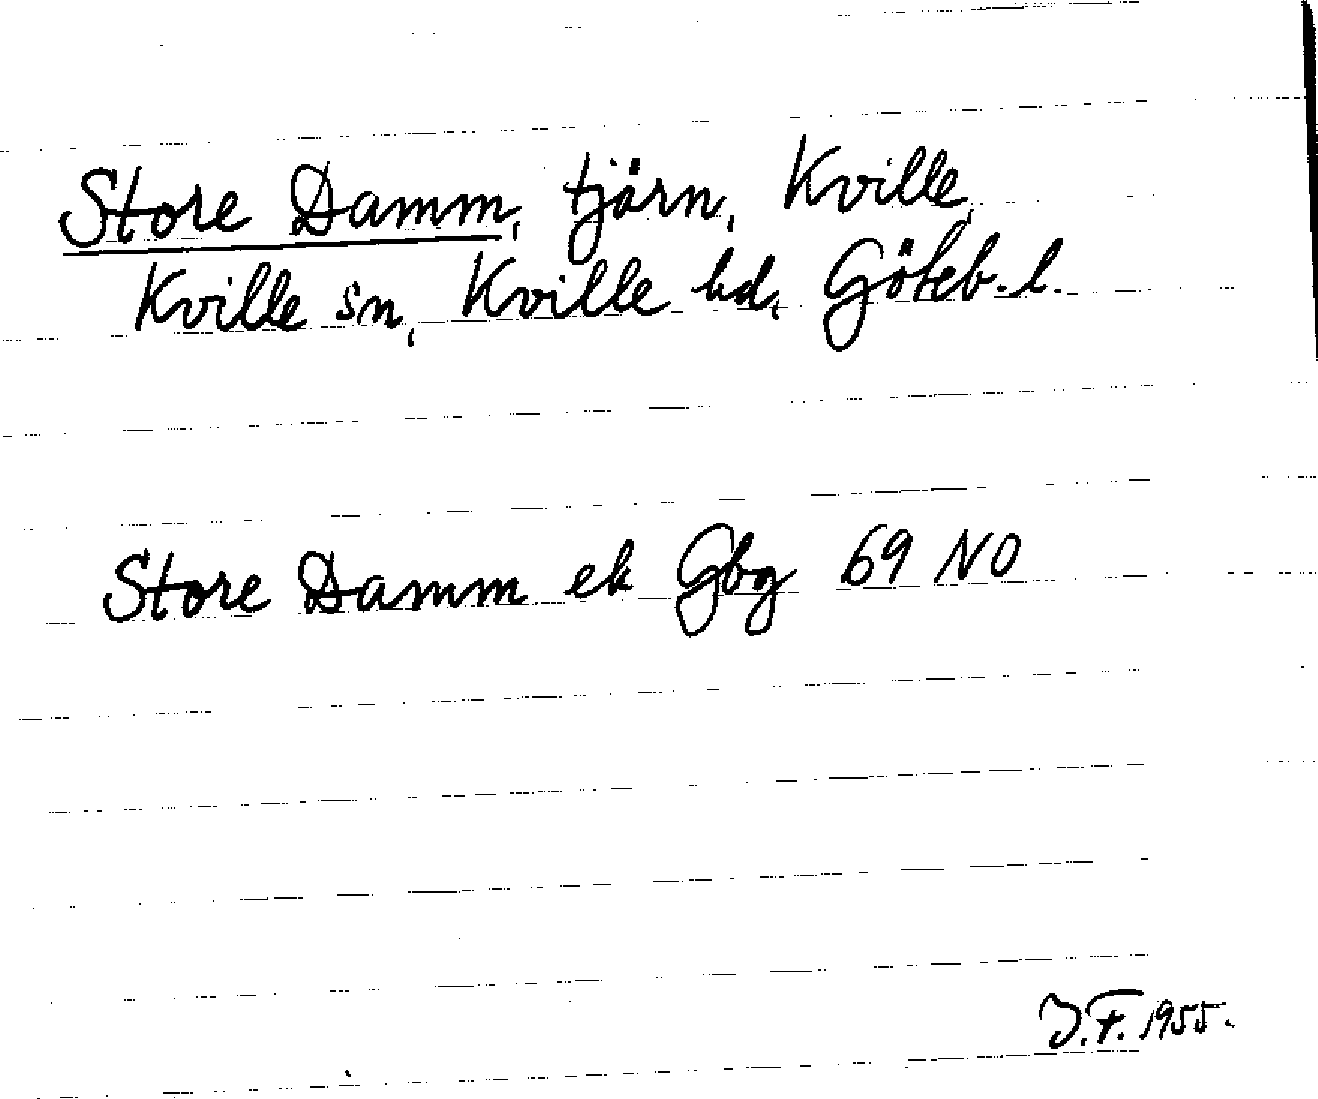 Store Damm, tjärn, Kville,
Kville sn, Kville hd, Göteb. l.
Store Damm ek Gbg 69 NO
J.F. 1955.